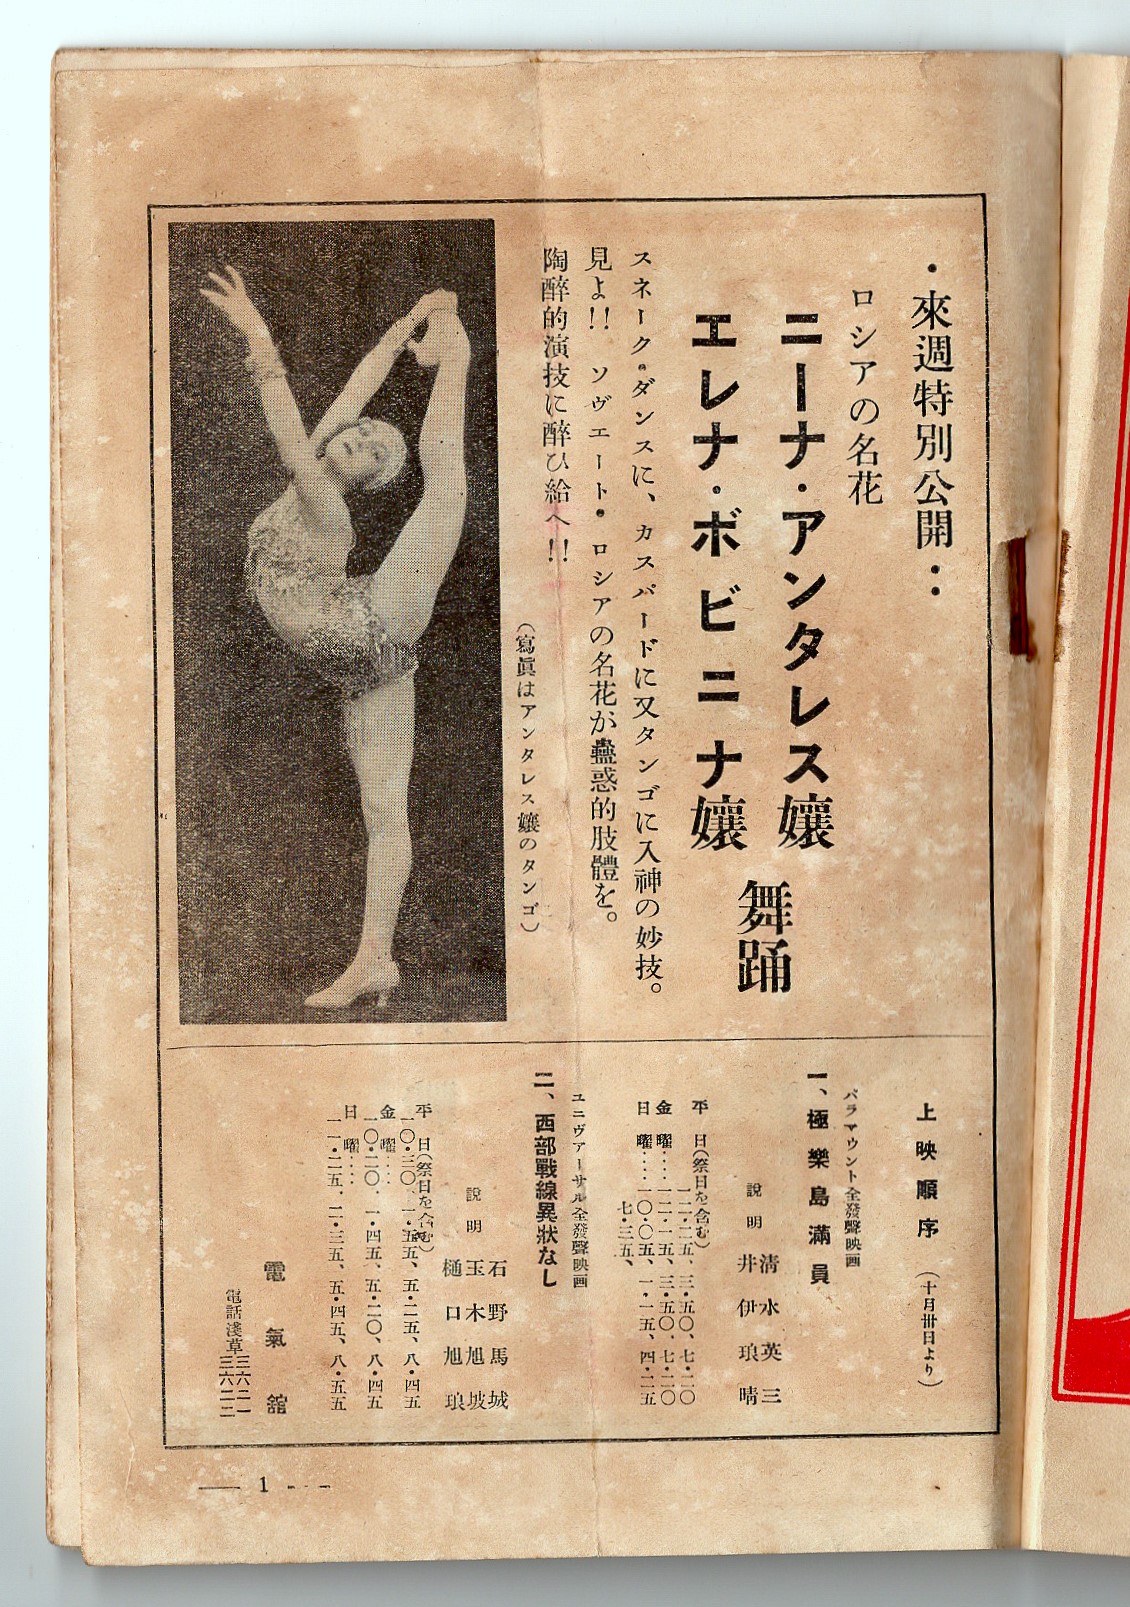 ・來週特別公開‥
ロシアの名花
ニーナ・アンタレス孃
エレナ・ボビニナ孃
舞踊
スネーク・ダンスに、カスバードに又タンゴに入神の妙技。
見よ!! ソヴエート・ロシアの名花が蠱惑的肢體を。
陶醉的演技に醉ひ給へ!!
(寫眞はアンタレス孃のタンゴ)
上映順序(十月卅日より)
パラマウント全發聲映画
一、極樂島滿員
説明
清水英三
井伊琅晴
平日(祭日を含む)
一二・二五、三・五〇、七・二〇
金曜‥‥一二・一五、三・五〇、七・二〇
日曜‥‥一〇・〇五、一・一五、四・二五
七・三五、
ユニヴアーサル全發聲映画
二、西部戰線異狀なし
石野馬城
説明
玉木旭坡
樋口旭琅
平日(祭日を含む)
一〇・三〇、一・五五、五・二五、八・四五
金曜‥‥
一〇・二〇、一・四五、五・二〇、八・四五
日曜‥‥
一一・二五、二・三五、五・四五、八・五五
電氣舘
電話淺草
三六二一
三六二二
— 1 - -